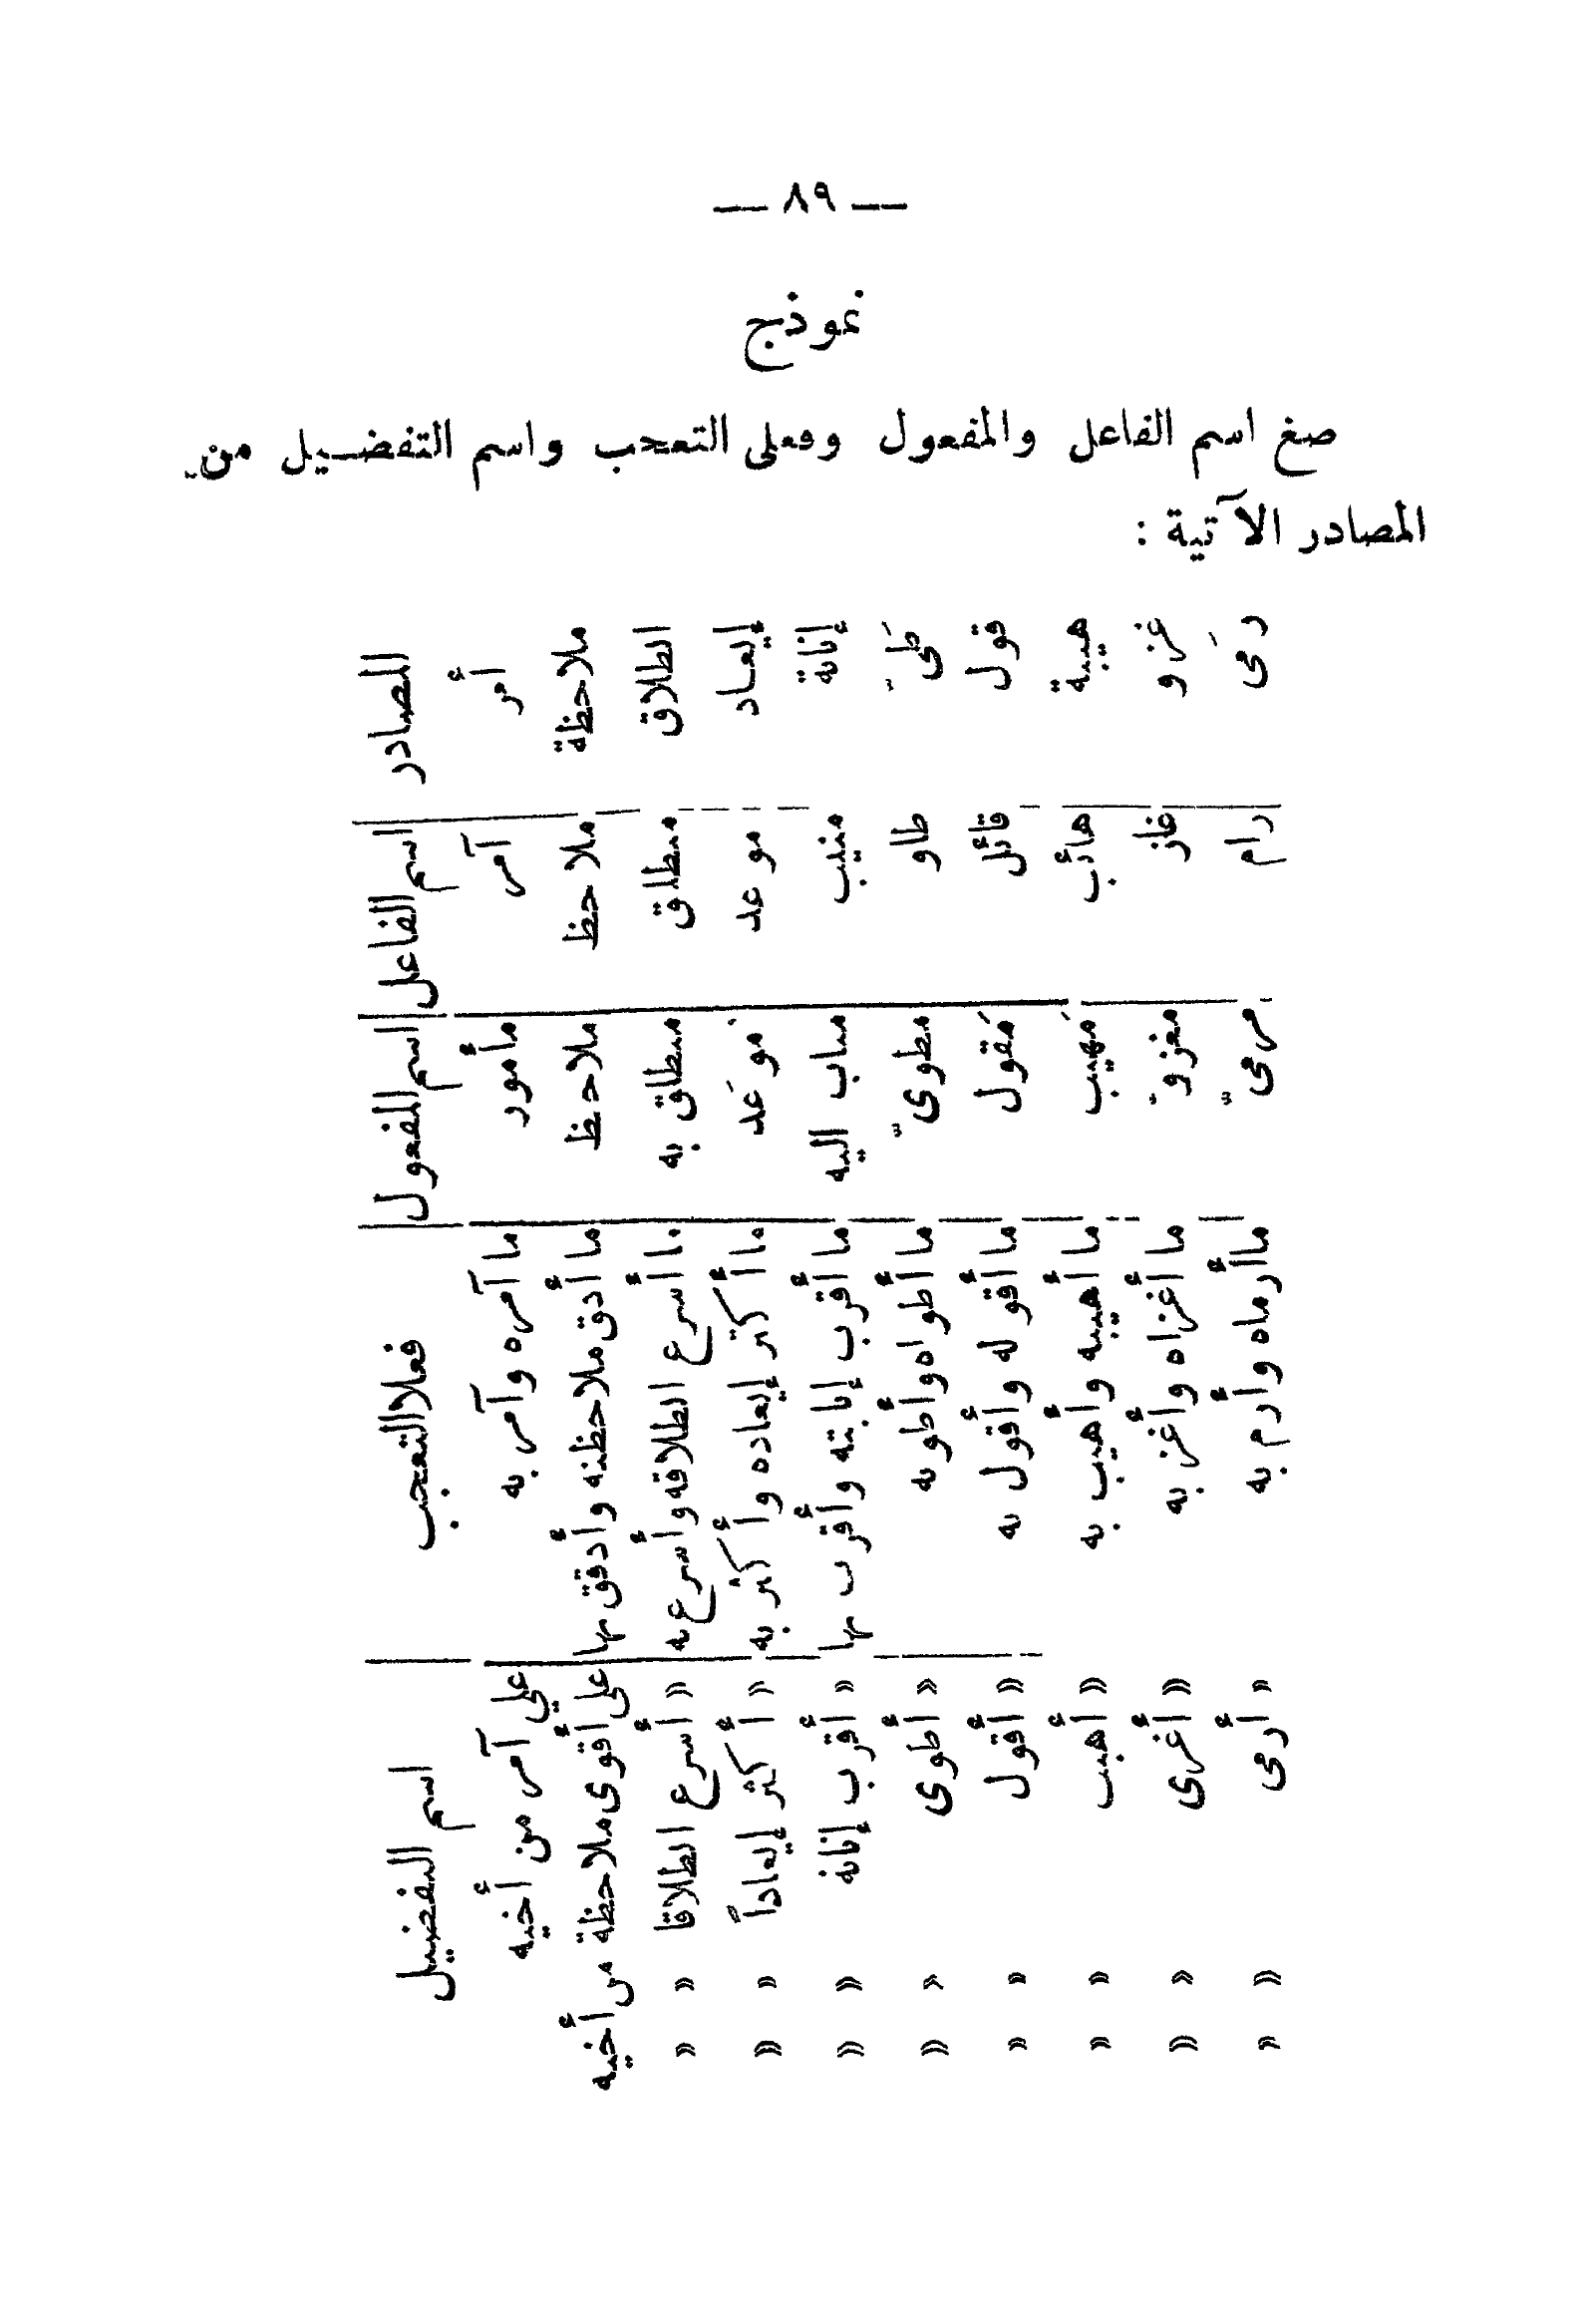 — ٨٩ —
نموذج
صغ اسم الفاعل والمفعول وفعلى التعجب واسم التفضيل من
المصادر الآتية :
المصادر اسم الفاعل اسم المفعول فعلا التعجب اسم التفضيل
أمر آمر مأمور ما آمره وآمر به على آمر من أخيه
ملاحظة ملاحظ ملاحظ ما أدق ملاحظته وأدقق بها على أقوى ملاحظة من أخيه
انطلاق منطلق منطلق به ما أسرع انطلاقه وأسرع به » أسرع انطلاقا » »
إيعاد موعد موعَد ما أكثر إيعاده وأكثر به » أكثر إيعاداً » »
إنابة منيب مناب اليه ما أقرب إنابته وأقرب بها » أقرب إنابة » »
طَىّ طاو مطوىّ ما أطواه وأطو به » أطوى » »
قول قائل مَقول ما أقوله وأقول به » أقول » »
هيبة هائب مَهيب ما أهيبه وأهيب به » أهيب » »
غزو غاز مغزوّ ما أغزاه وأغز به » أغزى » »
رَمى رام مرمىّ ما أرماه وأرم به » أرمى » »